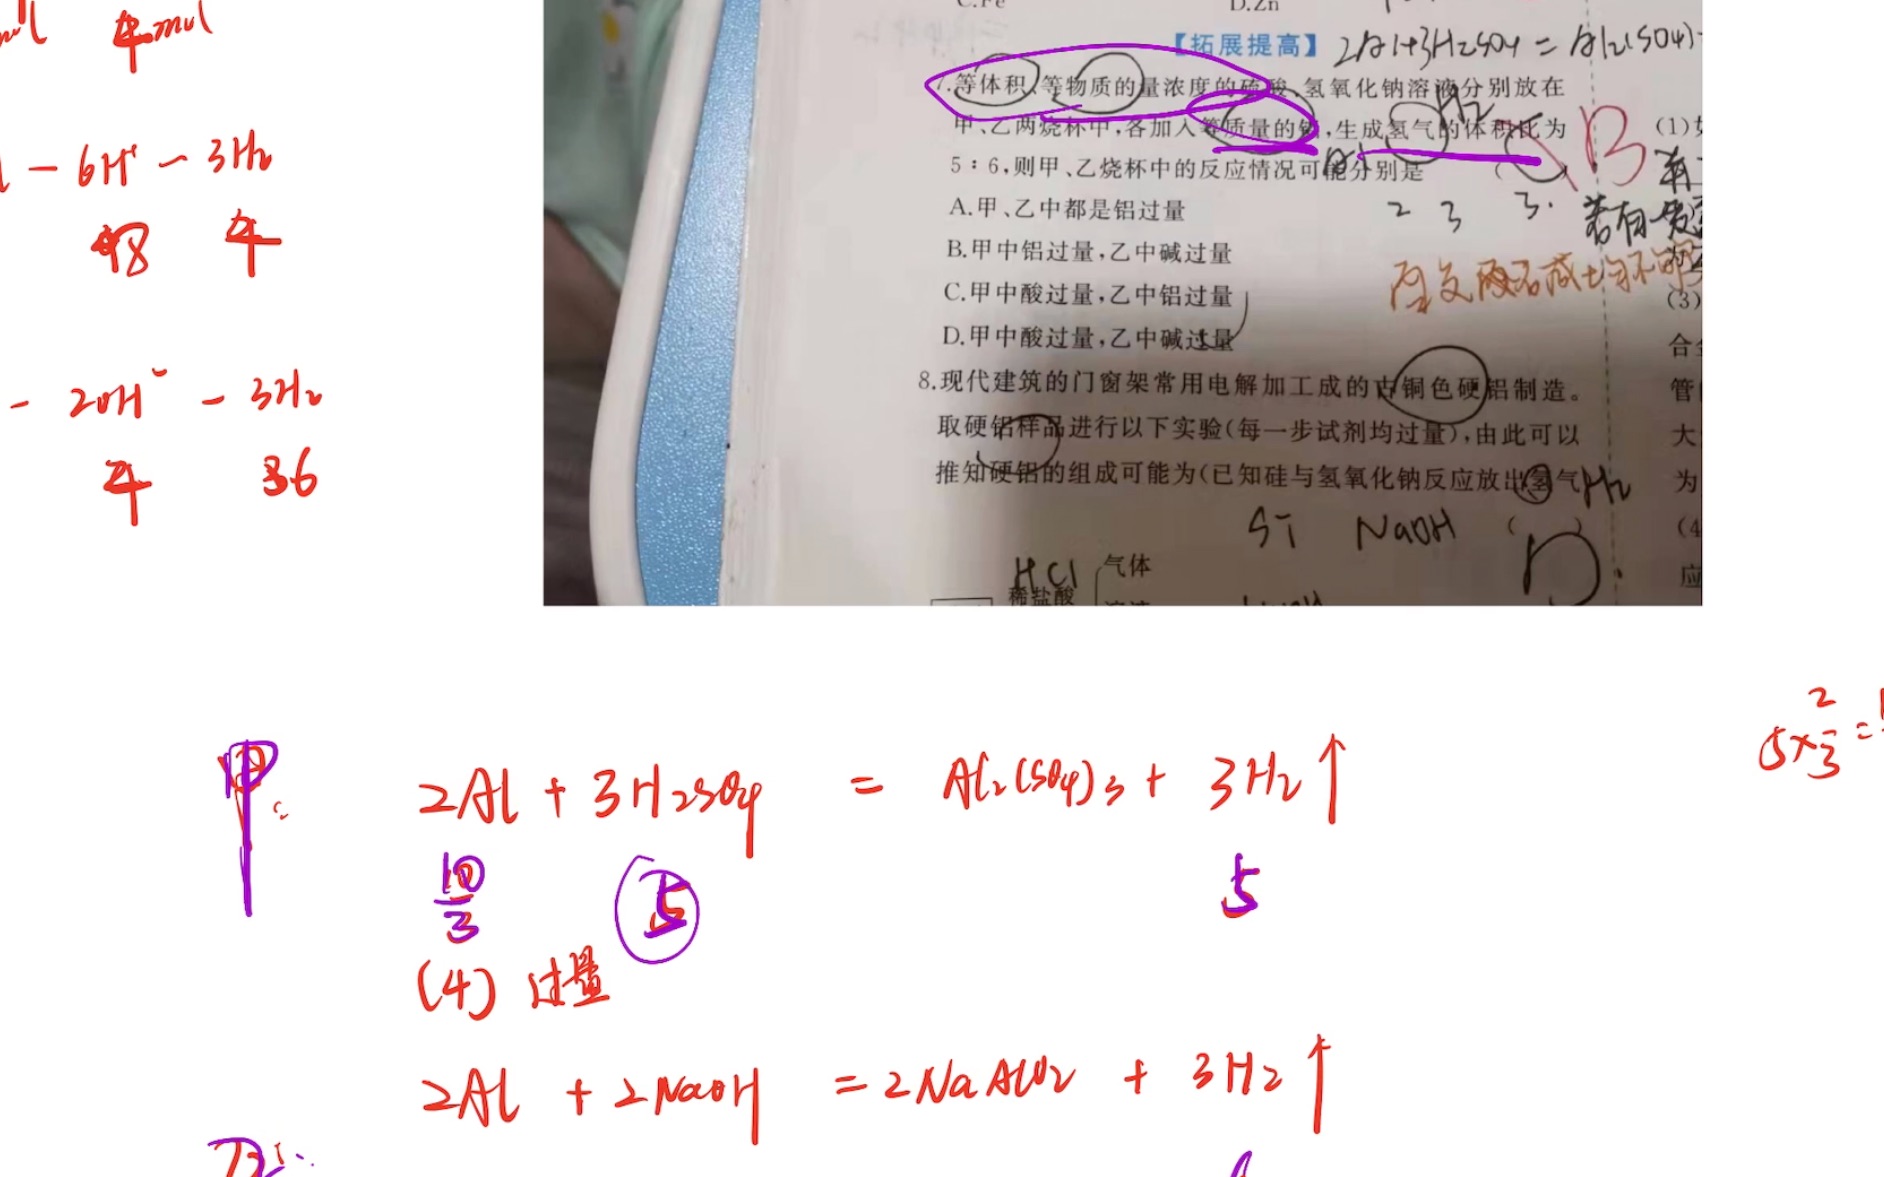 4mol
- 6H⁺ - 3H₂
4
- 2OH⁻ - 3H₂
4 36
C.Fe D.Zn
【拓展提高】 2Al+3H₂SO₄ = Al₂(SO₄)
7.等体积、等物质的量浓度的硫酸、氢氧化钠溶液分别放在
甲、乙两烧杯中,各加入等质量的铝,生成氢气的体积比为
5∶6,则甲、乙烧杯中的反应情况可能分别是 ( )
H₂
B
Al
2 3 3.
A.甲、乙中都是铝过量
B.甲中铝过量,乙中碱过量
C.甲中酸过量,乙中铝过量
D.甲中酸过量,乙中碱过量
8.现代建筑的门窗架常用电解加工成的古铜色硬铝制造。
取硬铝样品进行以下实验(每一步试剂均过量),由此可以
推知硬铝的组成可能为(已知硅与氢氧化钠反应放出氢气)
H₂
Si NaOH ( )
D.
HCl
稀盐酸
气体
(1)
(3)
合金
管
大
为
(4
应
甲:
2Al + 3H₂SO₄ = Al₂(SO₄)₃ + 3H₂↑
10/3 5 5
(4) 过量
5×2/3=
2Al + 2NaOH = 2NaAlO₂ + 3H₂↑
乙: